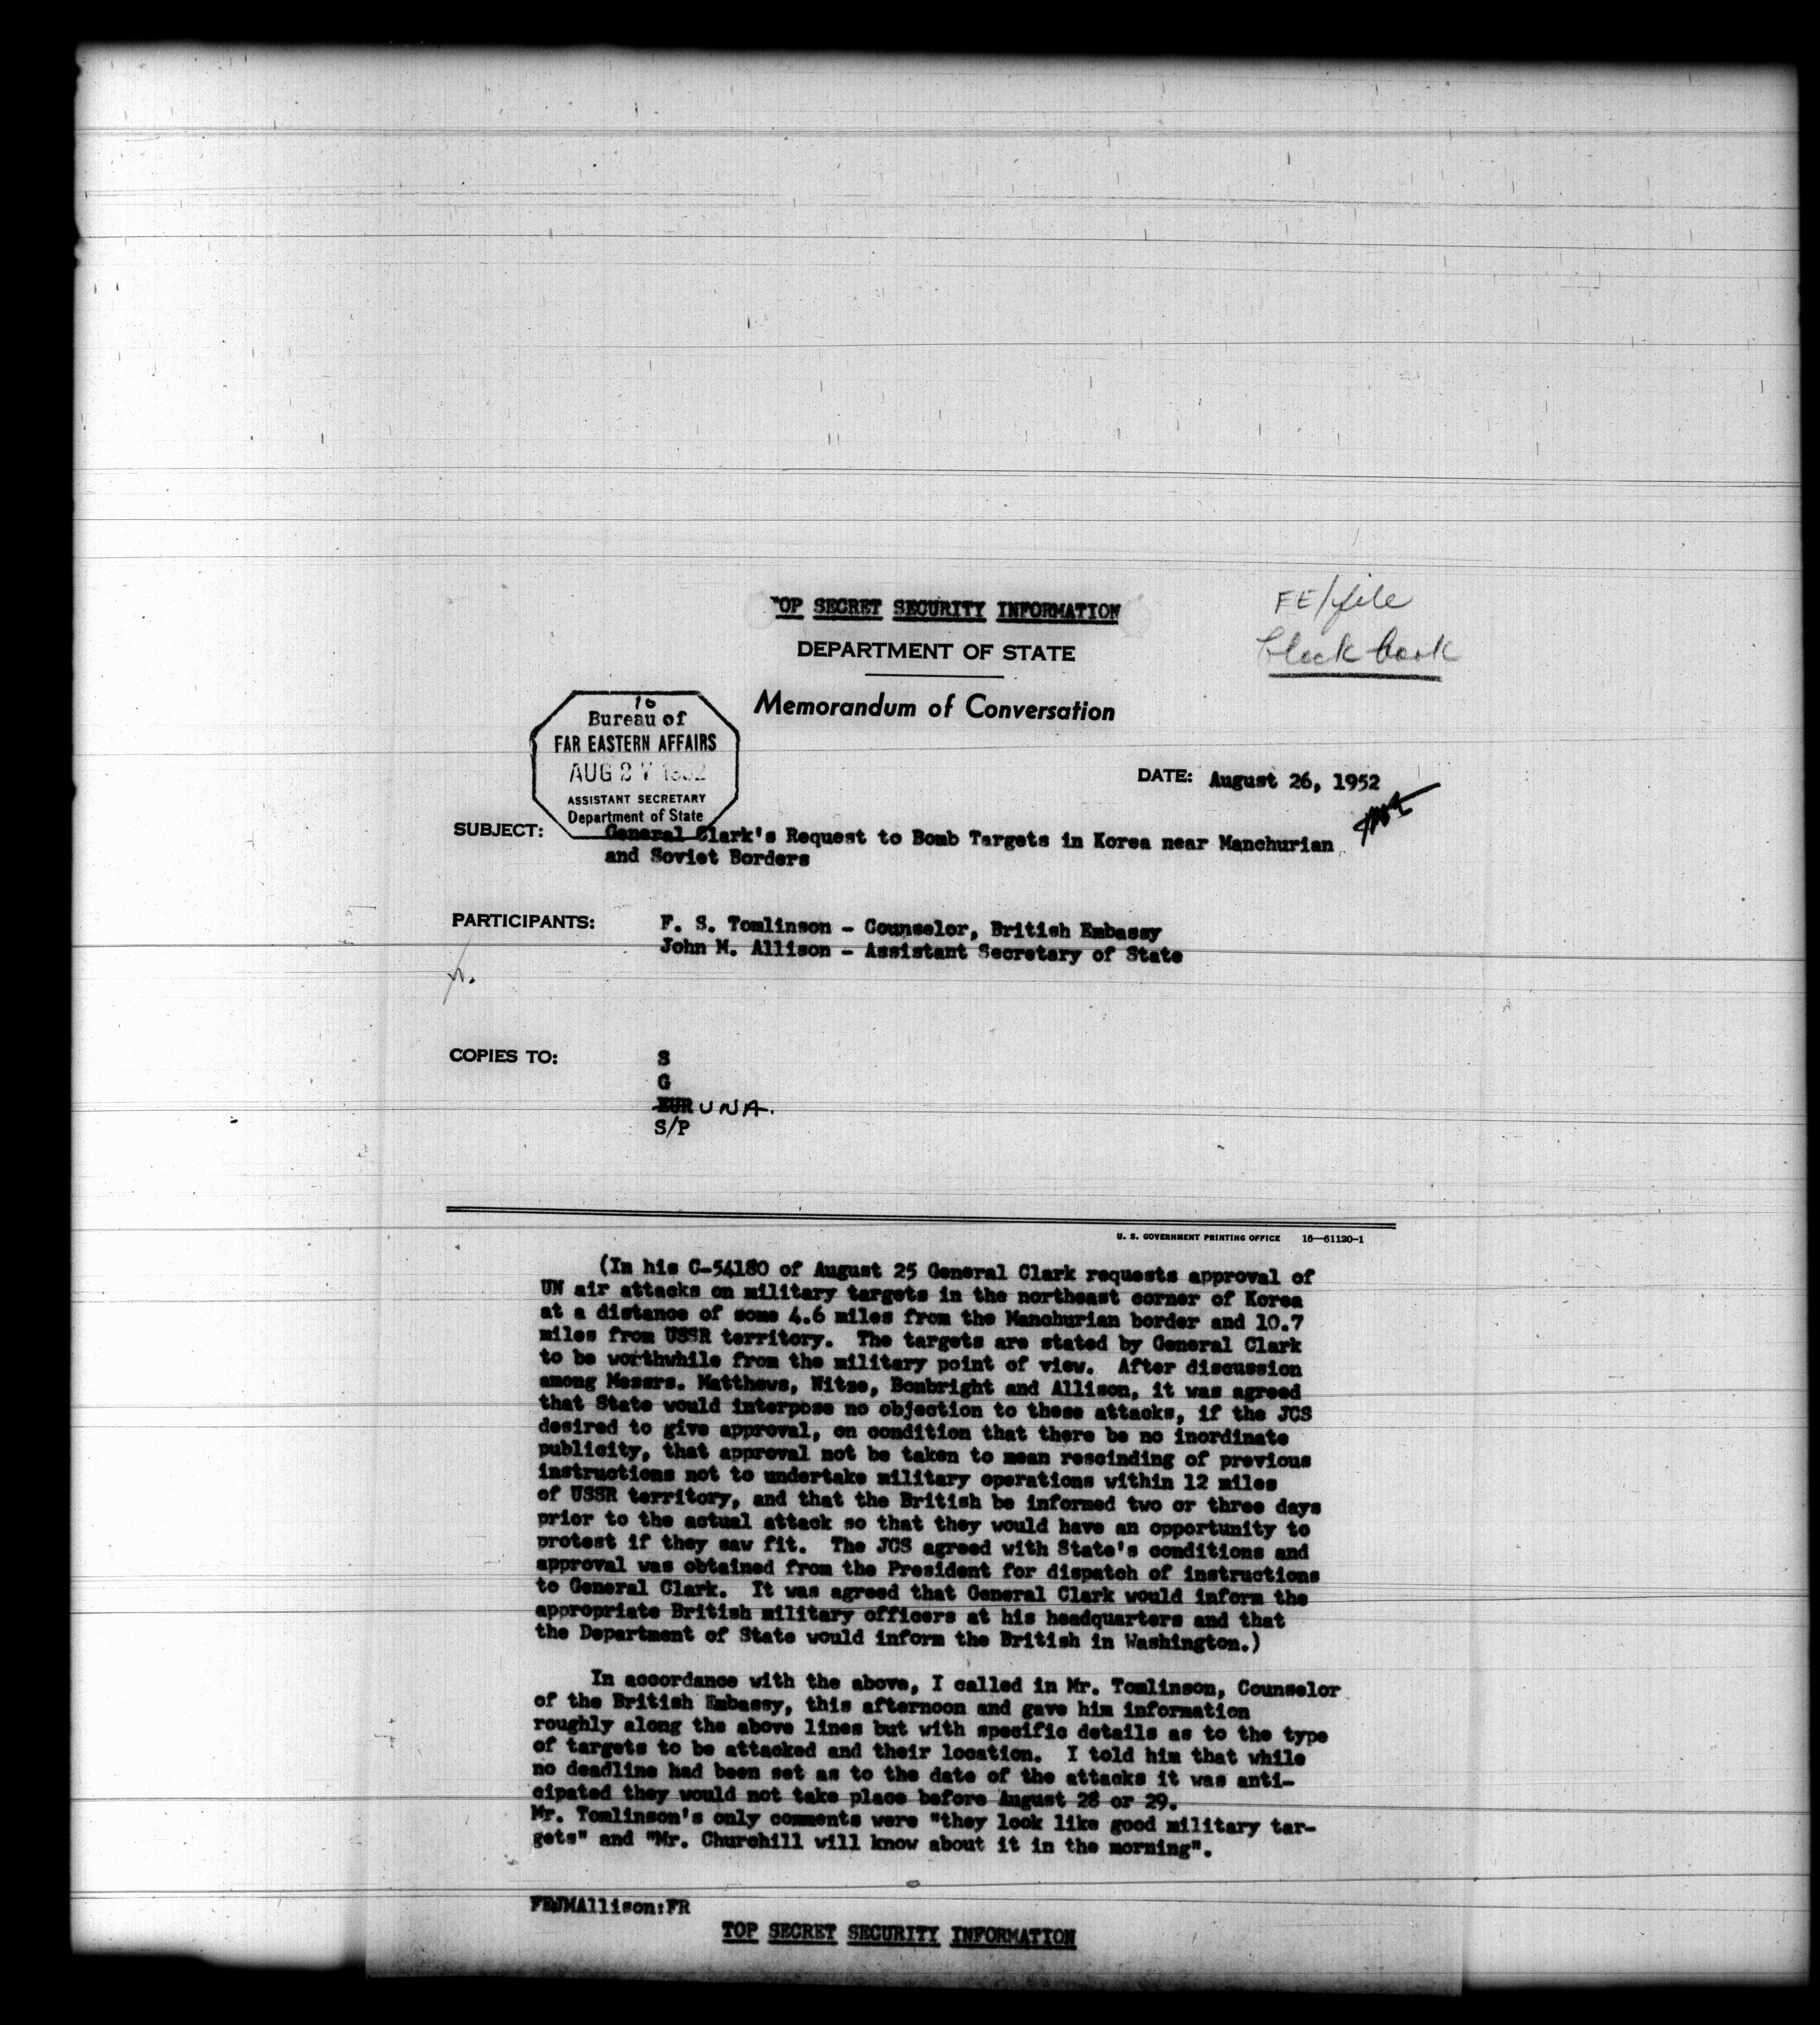 TOP SECRET SECURITY INFORMATION
FE/file
DEPARTMENT OF STATE
black book
Memorandum of Conversation
10
Bureau of
FAR EASTERN AFFAIRS
AUG 27 1952
ASSISTANT SECRETARY
Department of State
DATE: August 26, 1952
SUBJECT: General Clark's Request to Bomb Targets in Korea near Manchurian
and Soviet Borders
PARTICIPANTS: F. S. Tomlinson - Counselor, British Embassy
John M. Allison - Assistant Secretary of State
COPIES TO: S
G
EUR UNA.
S/P
U. S. GOVERNMENT PRINTING OFFICE 16—61120-1
(In his C-54180 of August 25 General Clark requests approval of
UN air attacks on military targets in the northeast corner of Korea
at a distance of some 4.6 miles from the Manchurian border and 10.7
miles from USSR territory. The targets are stated by General Clark
to be worthwhile from the military point of view. After discussion
among Messrs. Matthews, Nitze, Bonbright and Allison, it was agreed
that State would interpose no objection to these attacks, if the JCS
desired to give approval, on condition that there be no inordinate
publicity, that approval not be taken to mean rescinding of previous
instructions not to undertake military operations within 12 miles
of USSR territory, and that the British be informed two or three days
prior to the actual attack so that they would have an opportunity to
protest if they saw fit. The JCS agreed with State's conditions and
approval was obtained from the President for dispatch of instructions
to General Clark. It was agreed that General Clark would inform the
appropriate British military officers at his headquarters and that
the Department of State would inform the British in Washington.)
In accordance with the above, I called in Mr. Tomlinson, Counselor
of the British Embassy, this afternoon and gave him information
roughly along the above lines but with specific details as to the type
of targets to be attacked and their location. I told him that while
no deadline had been set as to the date of the attacks it was anti-
cipated they would not take place before August 28 or 29.
Mr. Tomlinson's only comments were "they look like good military tar-
gets" and "Mr. Churchill will know about it in the morning".
FE:JMAllison:FR
TOP SECRET SECURITY INFORMATION